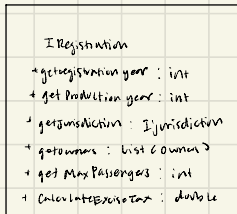 IRegistration
+ getregistration year : int
+ get Production year : int
+ getJurisdiction : Ijurisdiction
+ getowners : List<owners>
+ get Max Passengers : int
+ CalculateExciseTax : double